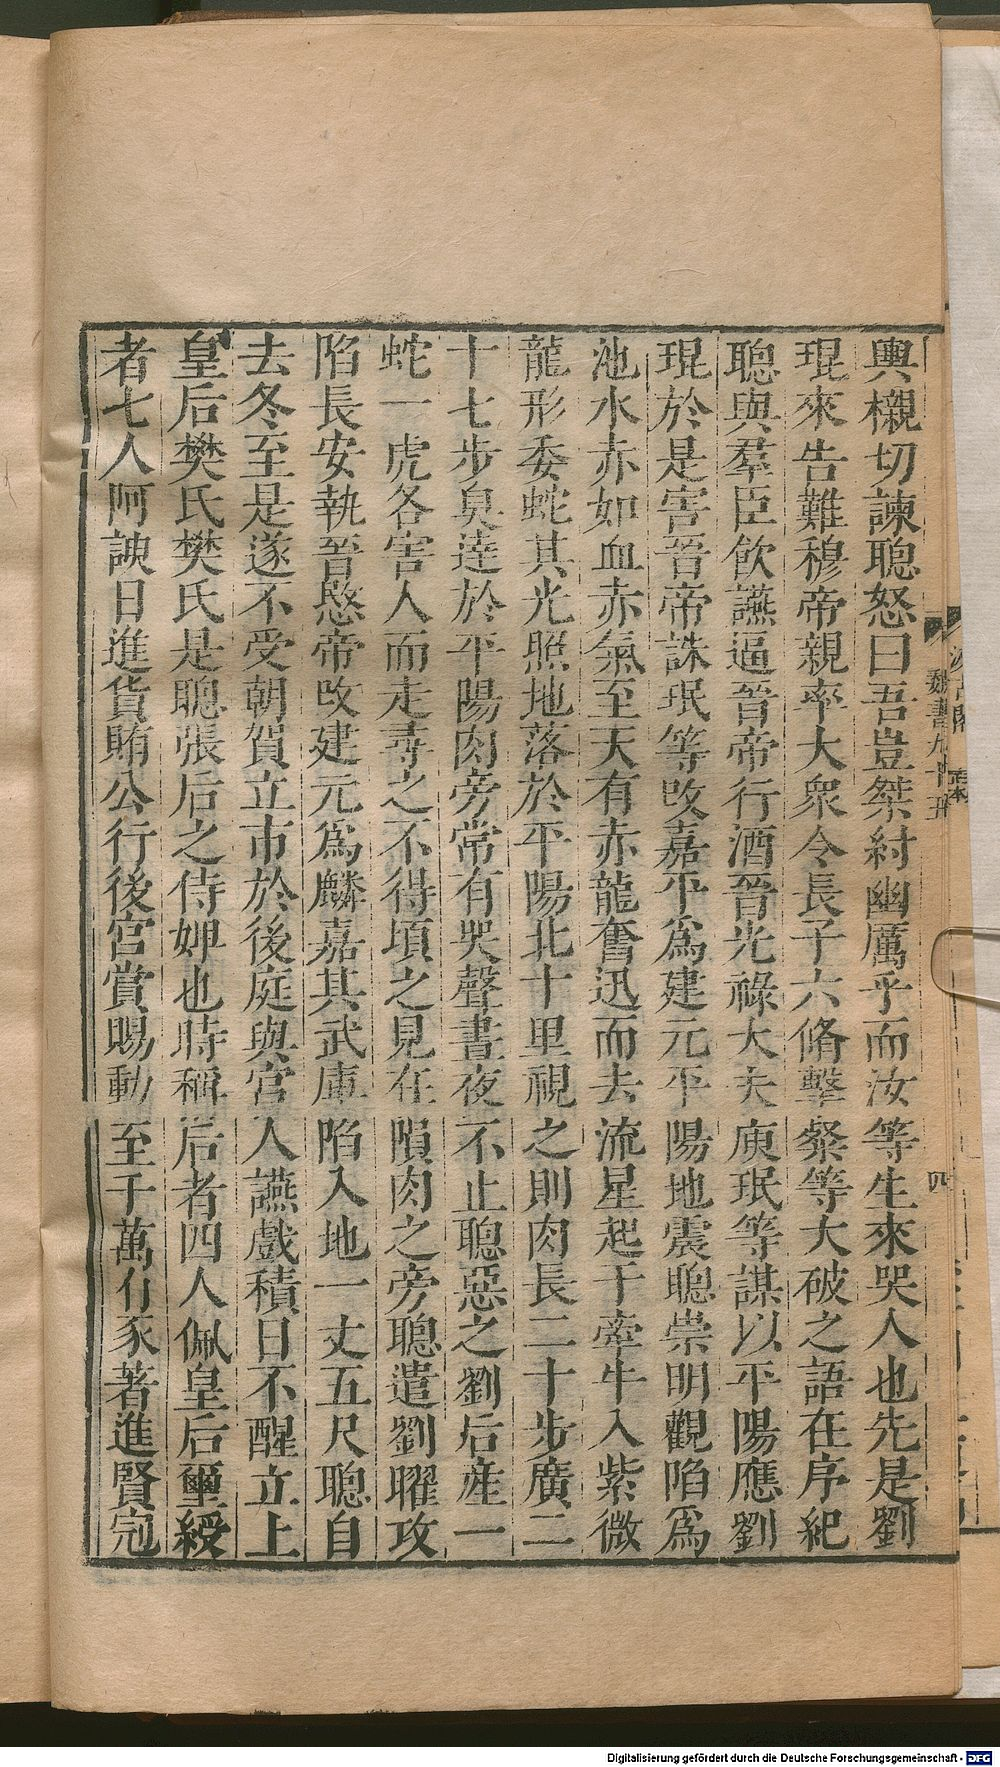 輿櫬切諫聰怒曰吾豈桀紂幽厲乎而汝等生來哭人也先是劉
琨來告難穆帝親率大衆令長子六脩擊粲等大破之語在序紀
聰與羣臣飲讌逼晉帝行酒晉光祿大夫庾珉等謀以平陽應劉
琨於是害晉帝誅珉等改嘉平爲建元平陽地震聰崇明觀陷爲
池水赤如血赤氣至天有赤龍奮迅而去流星起于牽牛入紫微
龍形委蛇其光照地落於平陽北十里視之則肉長二十步廣二
十七步臭達於平陽肉旁常有哭聲晝夜不止聰惡之劉后產一
蛇一虎各害人而走尋之不得頃之見在隕肉之旁聰遣劉曜攻
陷長安執晉愍帝改建元爲麟嘉其武庫陷入地一丈五尺聰自
去冬至是遂不受朝賀立市於後庭與宮人讌戲積日不醒立上
皇后樊氏樊氏是聰張后之侍婢也時稱后者四人佩皇后璽綬
者七人阿諛日進貨賄公行後宮賞賜動至千萬有豕著進賢冠
魏書九十五
四
Digitalisierung gefördert durch die Deutsche Forschungsgemeinschaft - DFG